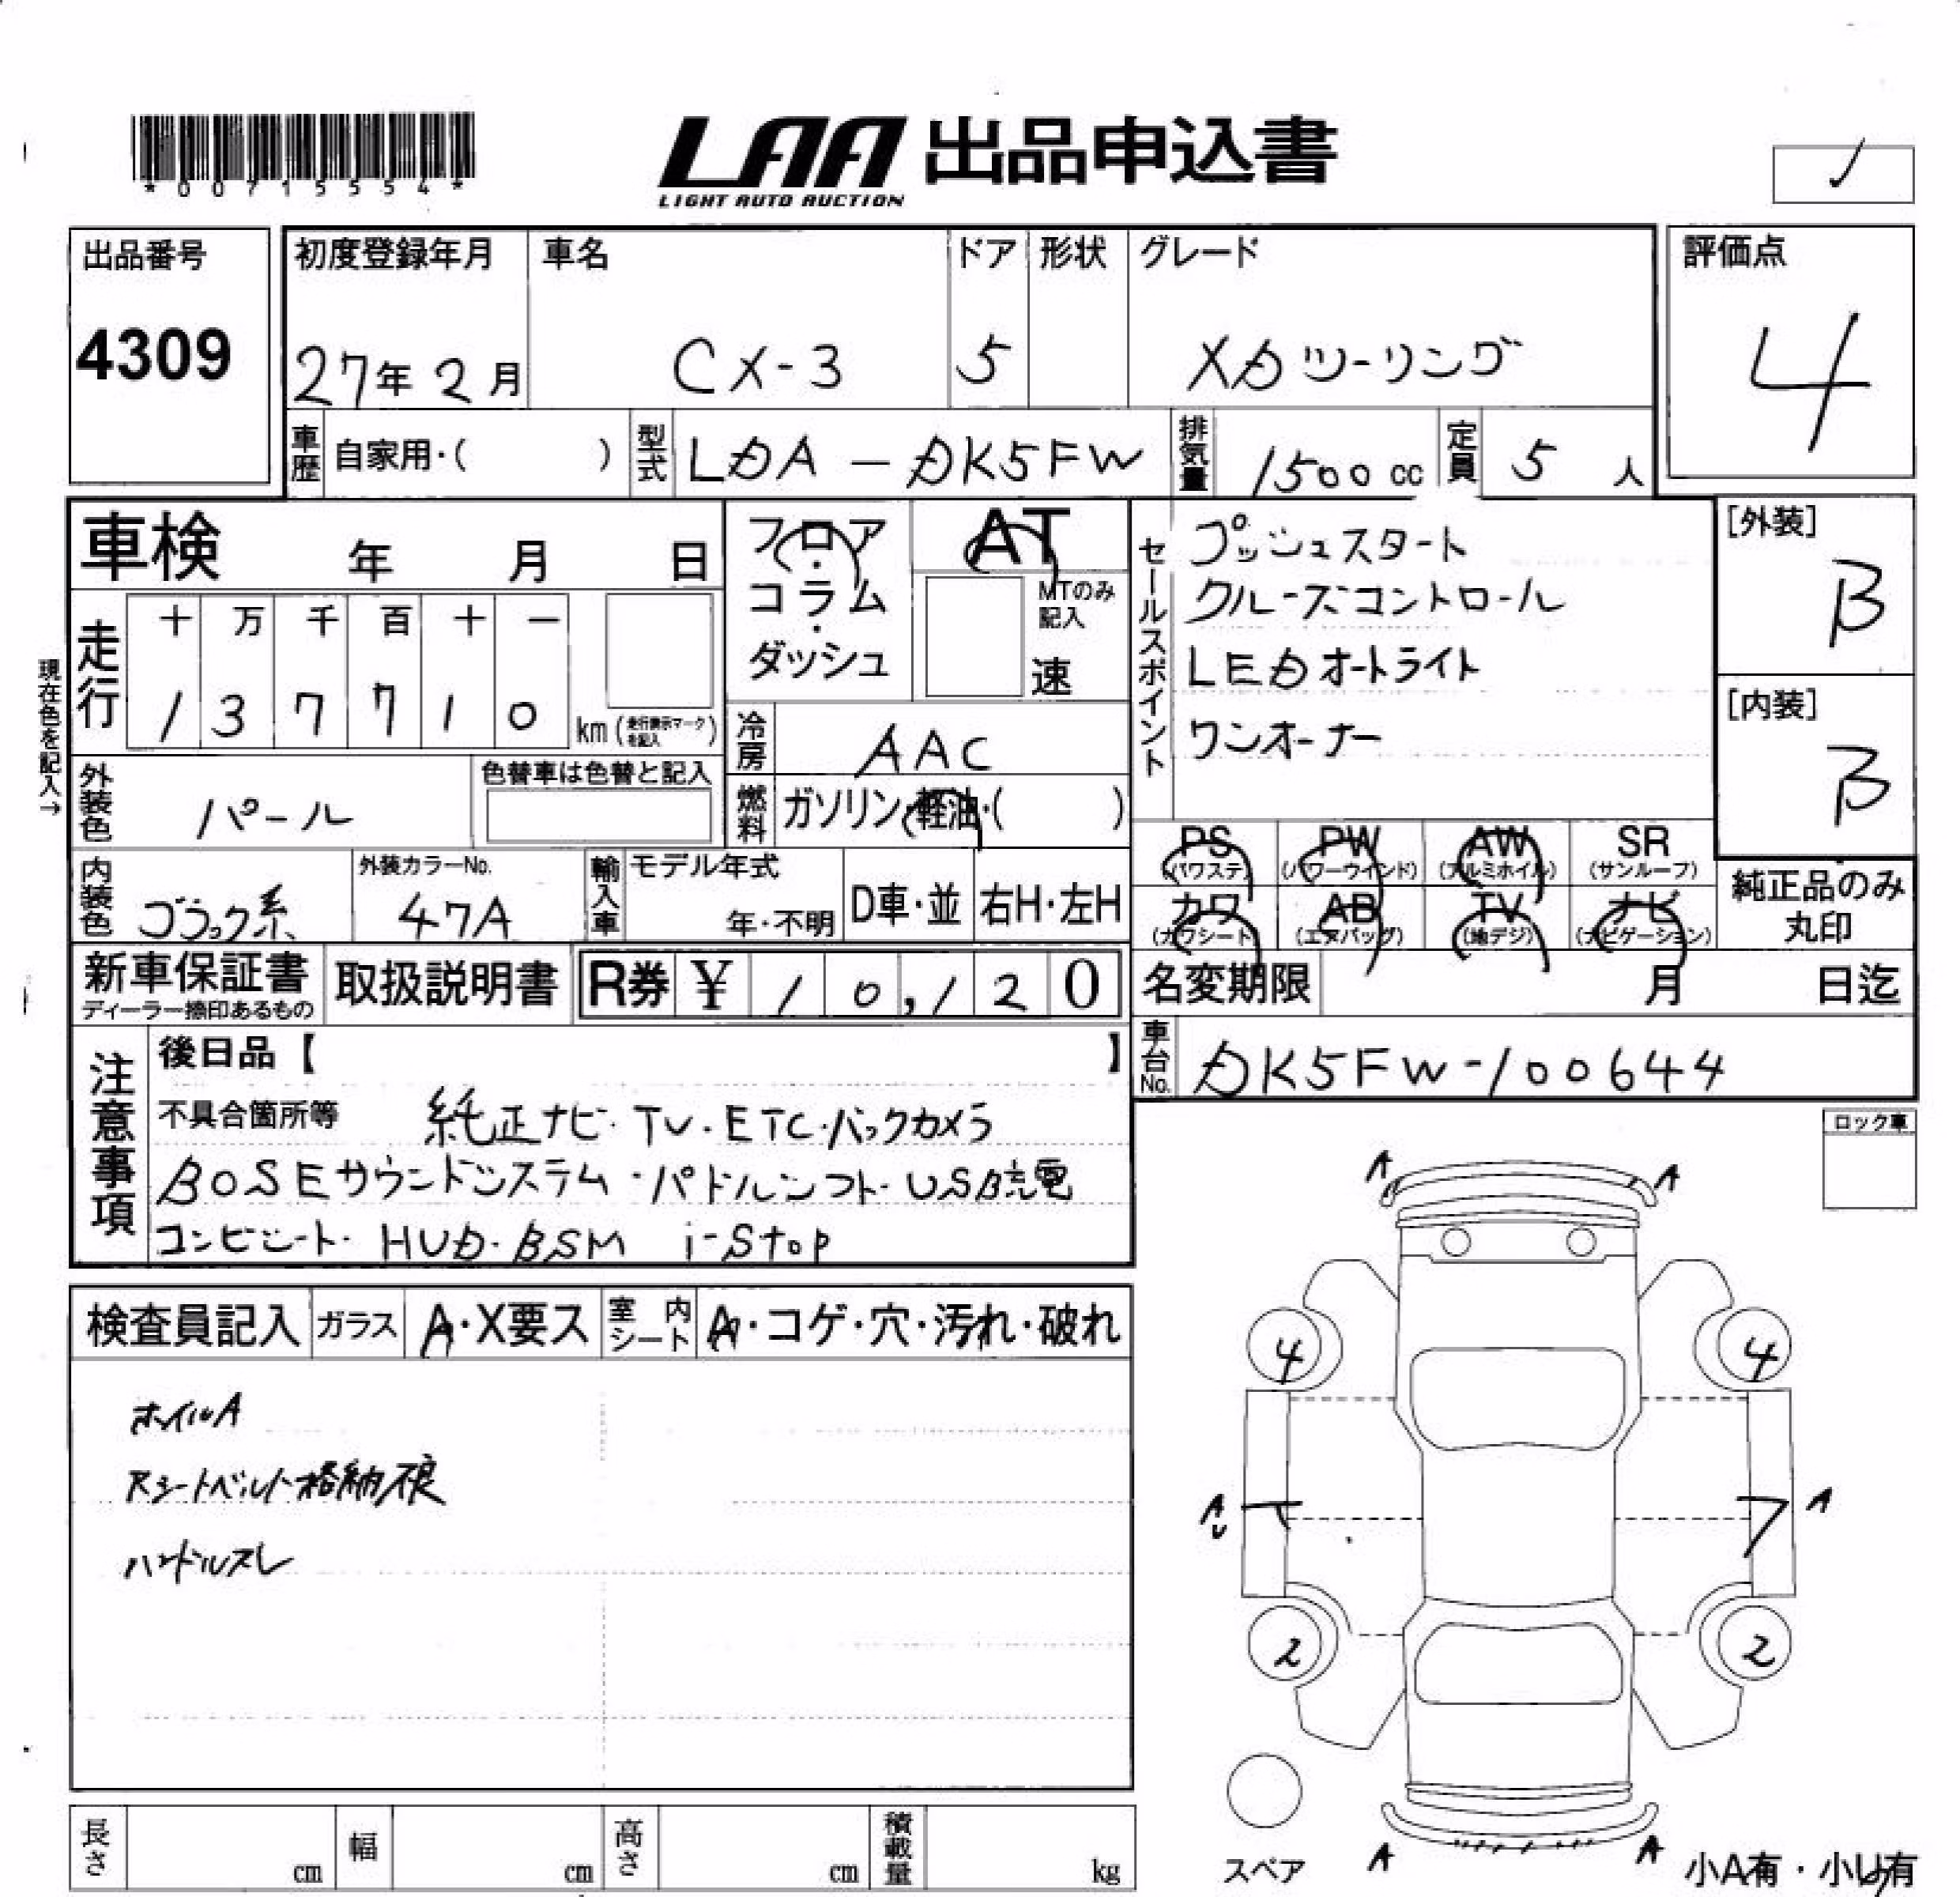 *00715554*
LAA 出品申込書
LIGHT AUTO AUCTION
出品番号
4309
初度登録年月
27年 2月
車名
CX-3
ドア
5
形状
グレード
XDツーリング
評価点
4
車歴 自家用・( )
型式 LDA-DK5FW
排気量 1500 cc
定員 5 人
車検 年 月 日
フロア・コラム・ダッシュ
AT
MTのみ記入
速
セールスポイント
プッシュスタート
クルーズコントロール
LEDオートライト
ワンオーナー
[外装]
B
[内装]
B
現在色を記入→
走行
十 万 千 百 十 一
1 3 7 7 1 0 km (走行表示マークを記入)
冷房 AAC
燃料 ガソリン・軽油・( )
外装色 パール
色替車は色替と記入
内装色 ブラック系
外装カラーNo.
47A
輸入車
モデル年式
年・不明
D車・並
右H・左H
PS (パワステ)
PW (パワーウインド)
AW (アルミホイル)
SR (サンルーフ)
カワ (カワシート)
AB (エアバッグ)
TV (地デジ)
ナビ (ナビゲーション)
純正品のみ丸印
新車保証書
ディーラー捺印あるもの
取扱説明書
R券 ¥ 10,120
名変期限 月 日迄
車台No. DK5FW-100644
注意事項
後日品【 】
不具合箇所等 純正ナビ・TV・ETC・バックカメラ
BOSEサウンドシステム・パドルシフト・USB充電
コンビシート・HUD・BSM i-stop
ロック車
検査員記入
ガラス A・X要ス
室内シート A・コゲ・穴・汚れ・破れ
ホイルA
Rシートベルト格納不良
ハンドルスレ
A A
4 4
A U A
2 2
スペア
A A
小A有・小U有
長さ cm
幅 cm
高さ cm
積載量 kg